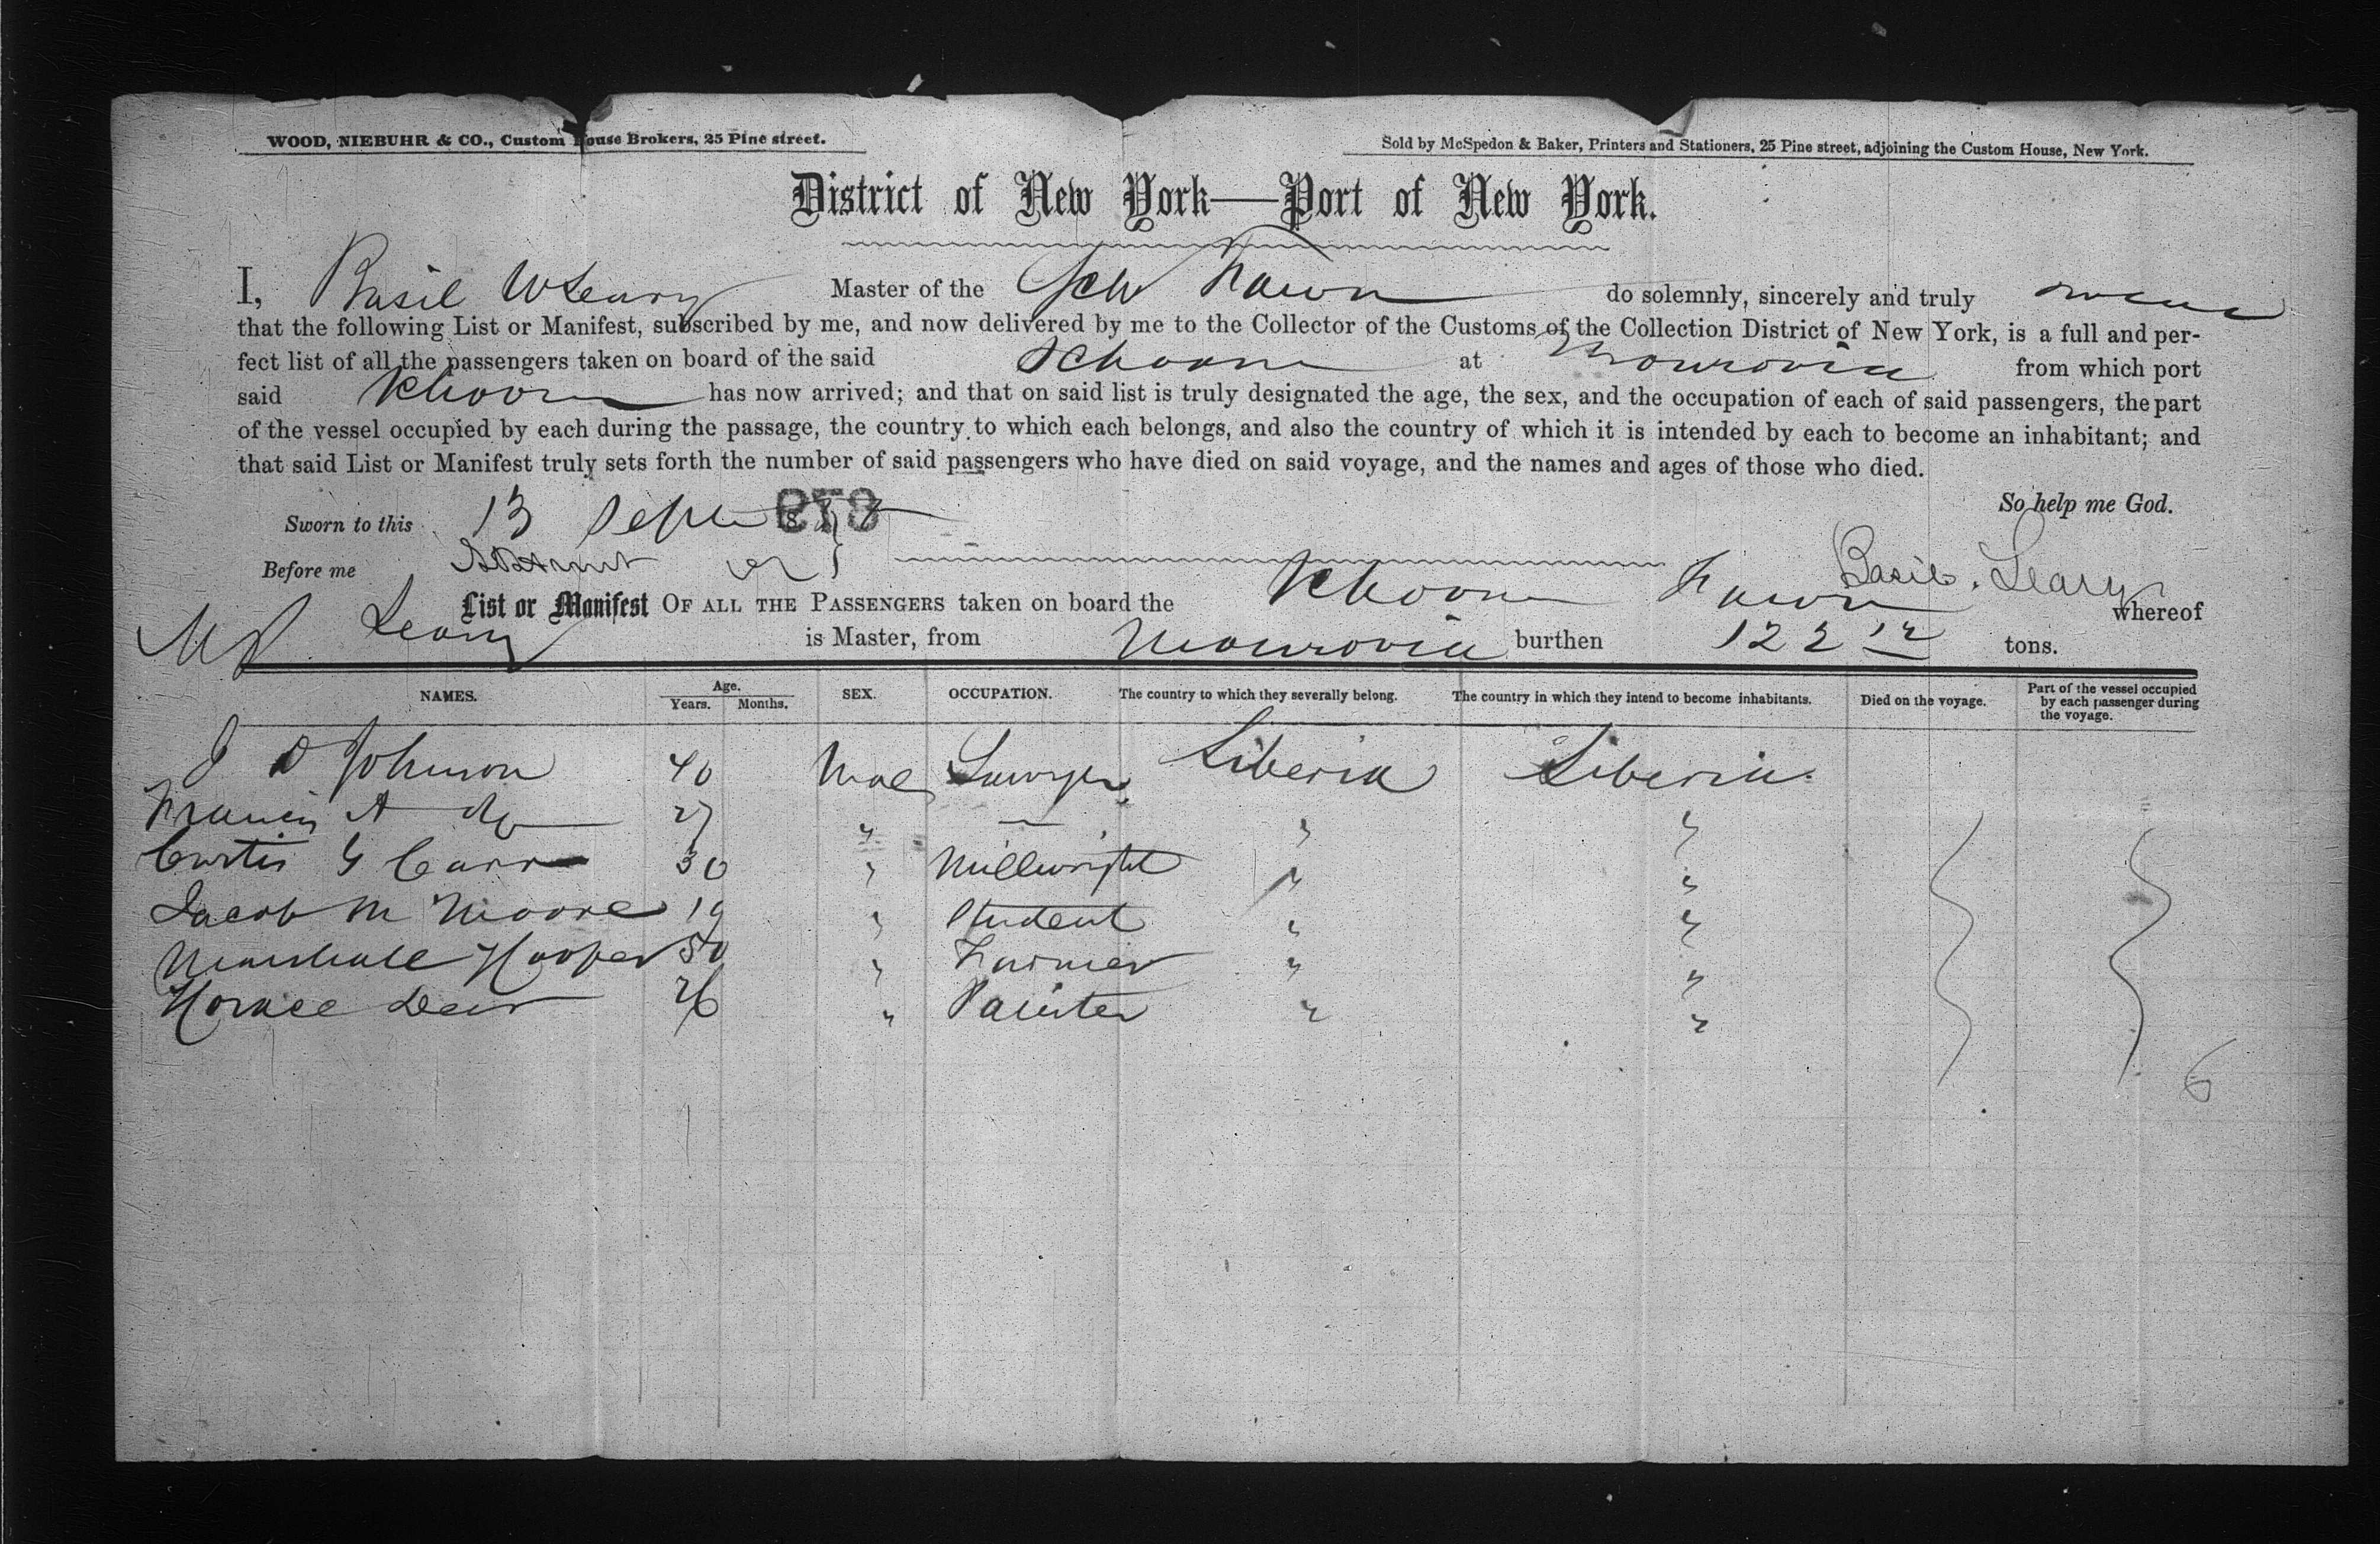 WOOD, NIEBUHR & CO., Custom House Brokers, 25 Pine street.
Sold by McSpedon & Baker, Printers and Stationers, 25 Pine street, adjoining the Custom House, New York.
District of New York—Port of New York.
I, Basil W Leary Master of the Sch Fawn do solemnly, sincerely and truly swear
that the following List or Manifest, subscribed by me, and now delivered by me to the Collector of the Customs of the Collection District of New York, is a full and per-
fect list of all the passengers taken on board of the said Schoonr at Monrovia from which port
said Schoonr has now arrived; and that on said list is truly designated the age, the sex, and the occupation of each of said passengers, the part
of the vessel occupied by each during the passage, the country to which each belongs, and also the country of which it is intended by each to become an inhabitant; and
that said List or Manifest truly sets forth the number of said passengers who have died on said voyage, and the names and ages of those who died.
So help me God.
Sworn to this 13 Sept 878
Before me
Basil. Leary
List or Manifest OF ALL THE PASSENGERS taken on board the Schoonr Fawn whereof
Leary is Master, from Monrovia burthen 122 12 tons.
NAMES. Age. Years. Months. SEX. OCCUPATION. The country to which they severally belong. The country in which they intend to become inhabitants. Died on the voyage. Part of the vessel occupied by each passenger during the voyage.
J D Johnson 40 Mal Lawyer Liberia Liberia.
Francis A do 27 " — " "
Curtis G Carr 30 " Millwright " "
Jacob M Moore 19 " Student " "
Marshall Hooper 50 " Farmer " "
Horace Deer 26 " Painter " "
6